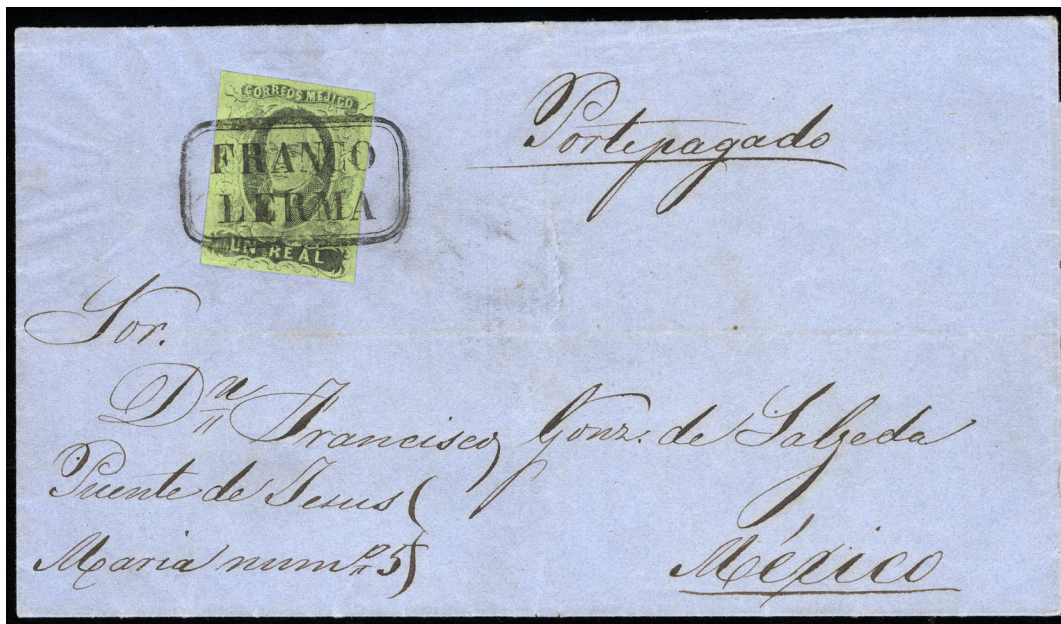 CORREOS MEJICO
FRANCO
LERMA
UN REAL
Porte pagado
Sor.
Dn Francisco Gonz. de Salzeda
Puente de Jesus
Maria numo. 5
México